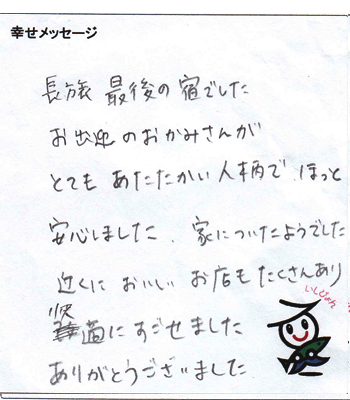 幸せメッセージ
長旅 最後の宿でした
お出迎のおかみさんが
とても あたたかい人柄で ほっと
安心しました、家についたようでした
近くに おいしい お店もたくさんあり
快適にすごせました
ありがとうございました